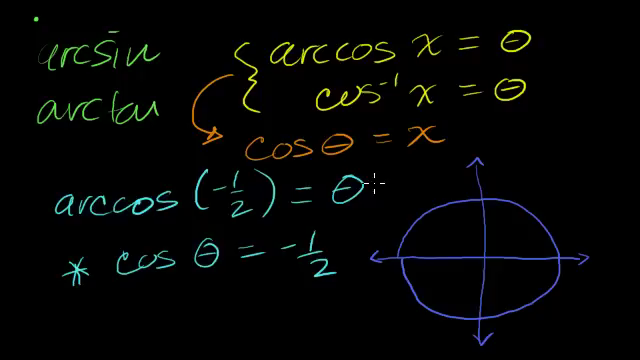 arcsin
arctan
arccos x = θ
cos⁻¹ x = θ
cos θ = x
arccos (-1/2) = θ
* cos θ = -1/2